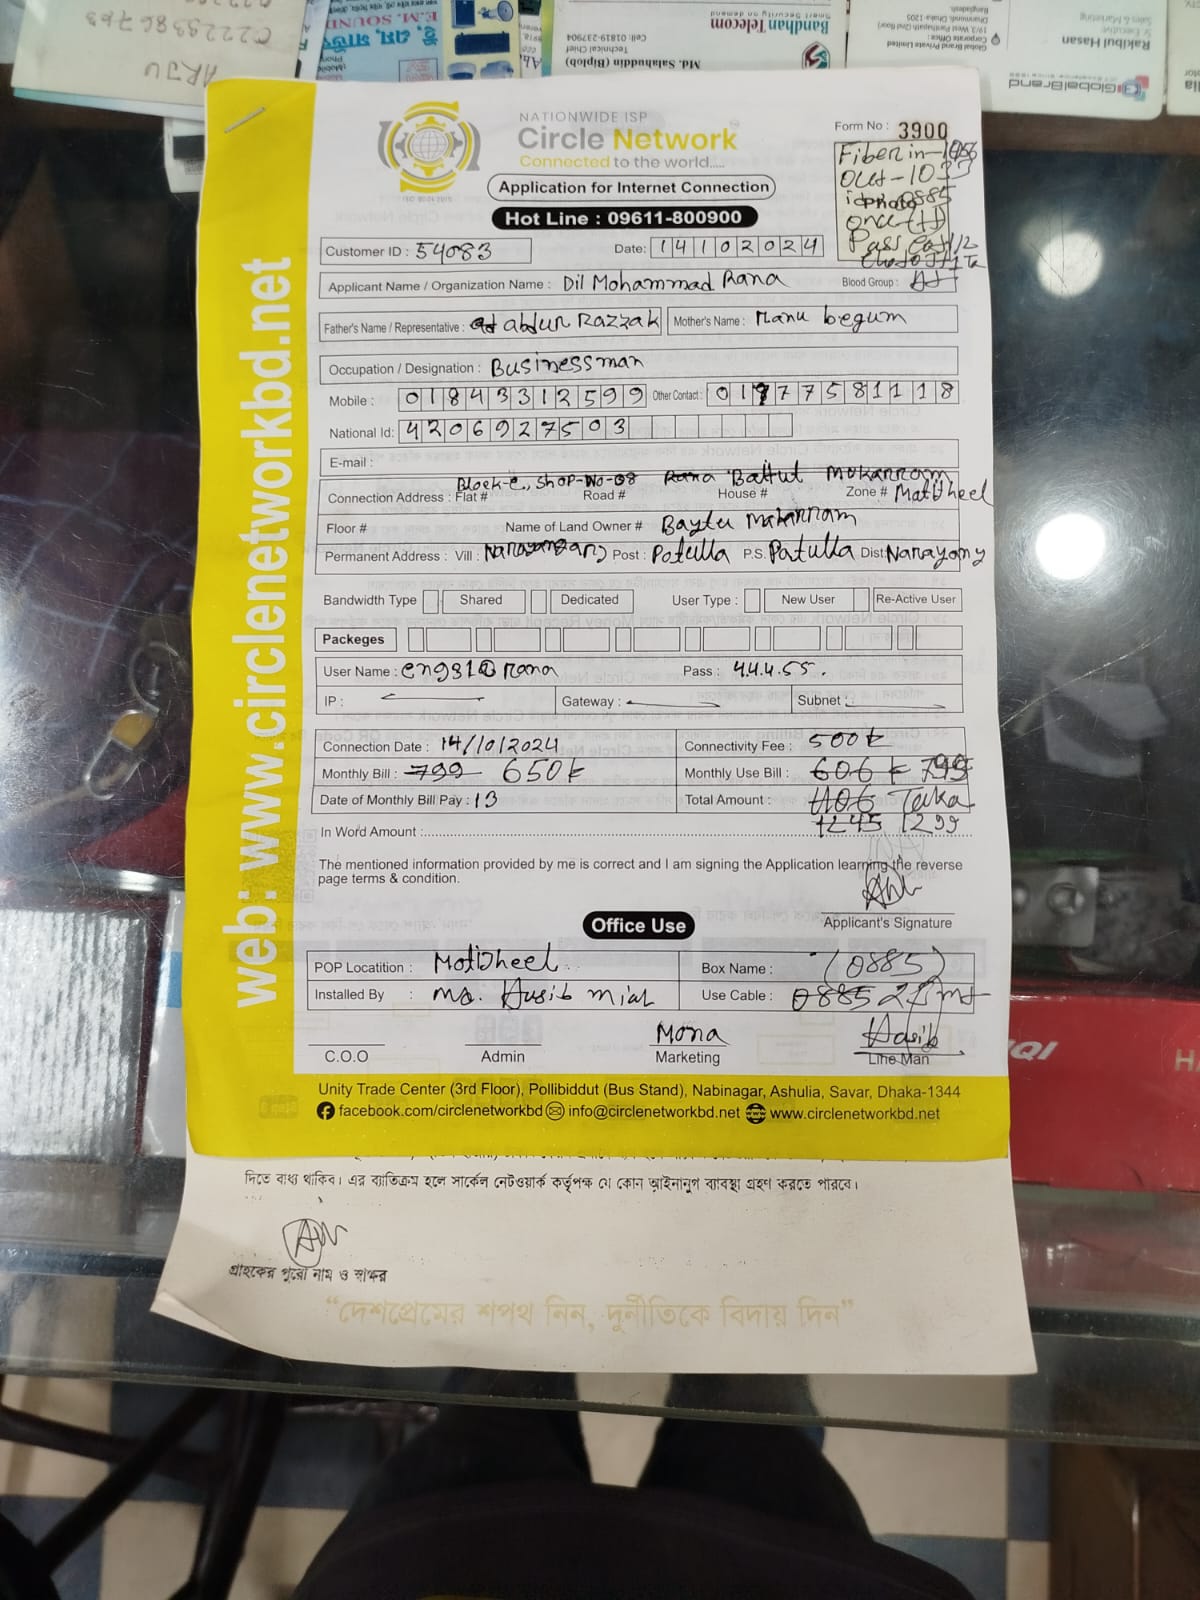 E.M. SOUND
ARJU
Bandhan Telecom
Smart Security on demand
Md. Salahuddin (Biplob)
Technical Chief
Cell: 01819-237904
GlobalBrand
Global Brand Private Limited
Corporate Office:
Rakibul Hasan
Sr. Executive
Sales & Marketing
web: www.circlenetworkbd.net
NATIONWIDE ISP
Circle Network
Connected to the world.....
Application for Internet Connection
Hot Line : 09611-800900
Form No : 3900
Fiber in-
Out-1033
0885
Pass
Customer ID : 54083
Date: 14102024
Applicant Name / Organization Name : Dil Mohammad Rana
Blood Group :
Father's Name / Representative : abdur Razzak
Mother's Name : Manu begum
Occupation / Designation : Businessman
Mobile : 01843312599
Other Contact : 01977581118
National Id: 4206927503
E-mail :
Block-C, Shop-No-08 Rana Baitul Mokarram
Connection Address : Flat # Road # House # Zone # Motijheel
Floor # Name of Land Owner # Baytu Makarram
Permanent Address : Vill : Narayangang Post : Potulla P.S. Patulla Dist: Narayong
Bandwidth Type Shared Dedicated User Type : New User Re-Active User
Packeges
User Name : eng31@Rana Pass : 44455.
IP : Gateway : Subnet :
Connection Date : 14/10/2024
Connectivity Fee : 500t
Monthly Bill : 799 650t
Monthly Use Bill : 606 t 799
Date of Monthly Bill Pay : 13
Total Amount : 1106 Taka
1245 1299
In Word Amount :
The mentioned information provided by me is correct and I am signing the Application learning the reverse
page terms & condition.
Applicant's Signature
Office Use
POP Locatition : Motijheel
Box Name : (0885)
Installed By : MD. Hasib Miah
Use Cable : 0885
C.O.O
Admin
Mona
Marketing
Hasib
Line Man
Unity Trade Center (3rd Floor), Pollibiddut (Bus Stand), Nabinagar, Ashulia, Savar, Dhaka-1344
facebook.com/circlenetworkbd info@circlenetworkbd.net www.circlenetworkbd.net
দিতে বাধ্য থাকিব। এর ব্যতিক্রম হলে সার্কেল নেটওয়ার্ক কর্তৃপক্ষ যে কোন আইনানুগ ব্যবস্থা গ্রহণ করতে পারবে।
গ্রাহকের পুরো নাম ও স্বাক্ষর
“দেশপ্রেমের শপথ নিন, দুর্নীতিকে বিদায় দিন”